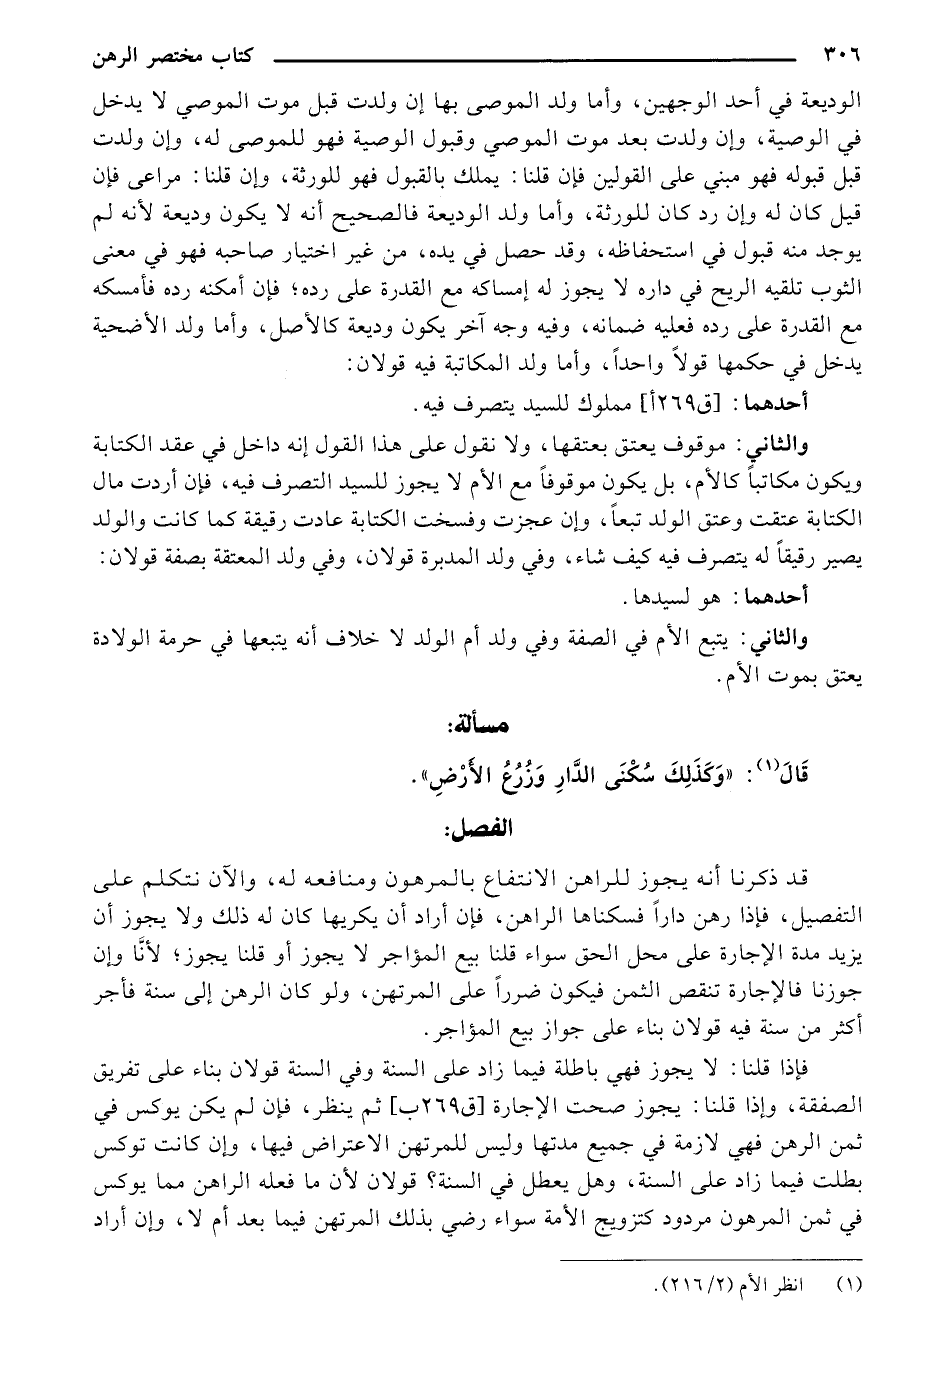 ٣٠٦ كتاب مختصر الرهن
الوديعة في أحد الوجهين، وأما ولد الموصى بها إن ولدت قبل موت الموصي لا يدخل
في الوصية، وإن ولدت بعد موت الموصي وقبول الوصية فهو للموصى له، وإن ولدت
قبل قبوله فهو مبني على القولين فإن قلنا: يملك بالقبول فهو للورثة، وإن قلنا: مراعى فإن
قيل كان له وإن رد كان للورثة، وأما ولد الوديعة فالصحيح أنه لا يكون وديعة لأنه لم
يوجد منه قبول في استحفاظه، وقد حصل في يده، من غير اختيار صاحبه فهو في معنى
الثوب تلقيه الريح في داره لا يجوز له إمساكه مع القدرة على رده؛ فإن أمكنه رده فأمسكه
مع القدرة على رده فعليه ضمانه، وفيه وجه آخر يكون وديعة كالأصل، وأما ولد الأضحية
يدخل في حكمها قولاً واحداً، وأما ولد المكاتبة فيه قولان:
أحدهما: [ق٢٦٩أ] مملوك للسيد يتصرف فيه.
والثاني: موقوف يعتق بعتقها، ولا نقول على هذا القول إنه داخل في عقد الكتابة
ويكون مكاتباً كالأم، بل يكون موقوفاً مع الأم لا يجوز للسيد التصرف فيه، فإن أردت مال
الكتابة عتقت وعتق الولد تبعاً، وإن عجزت وفسخت الكتابة عادت رقيقة كما كانت والولد
يصير رقيقاً له يتصرف فيه كيف شاء، وفي ولد المدبرة قولان، وفي ولد المعتقة بصفة قولان:
أحدهما: هو لسيدها.
والثاني: يتبع الأم في الصفة وفي ولد أم الولد لا خلاف أنه يتبعها في حرمة الولادة
يعتق بموت الأم.
مسألة:
قَالَ(١): «وَكَذَلِكَ سُكْنَى الدَّارِ وَزُرُعُ الأَرْضِ».
الفصل:
قد ذكرنا أنه يجوز للراهن الانتفاع بالمرهون ومنافعه له، والآن نتكلم على
التفصيل، فإذا رهن داراً فسكناها الراهن، فإن أراد أن يكريها كان له ذلك ولا يجوز أن
يزيد مدة الإجارة على محل الحق سواء قلنا بيع المؤاجر لا يجوز أو قلنا يجوز؛ لأنَّا وإن
جوزنا فالإجارة تنقص الثمن فيكون ضرراً على المرتهن، ولو كان الرهن إلى سنة فأجر
أكثر من سنة فيه قولان بناء على جواز بيع المؤاجر.
فإذا قلنا: لا يجوز فهي باطلة فيما زاد على السنة وفي السنة قولان بناء على تفريق
الصفقة، وإذا قلنا: يجوز صحت الإجارة [ق٢٦٩ب] ثم ينظر، فإن لم يكن يوكس في
ثمن الرهن فهي لازمة في جميع مدتها وليس للمرتهن الاعتراض فيها، وإن كانت توكس
بطلت فيما زاد على السنة، وهل يعطل في السنة؟ قولان لأن ما فعله الراهن مما يوكس
في ثمن المرهون مردود كتزويج الأمة سواء رضي بذلك المرتهن فيما بعد أم لا، وإن أراد
(١) انظر الأم (٢/ ٢١٦).